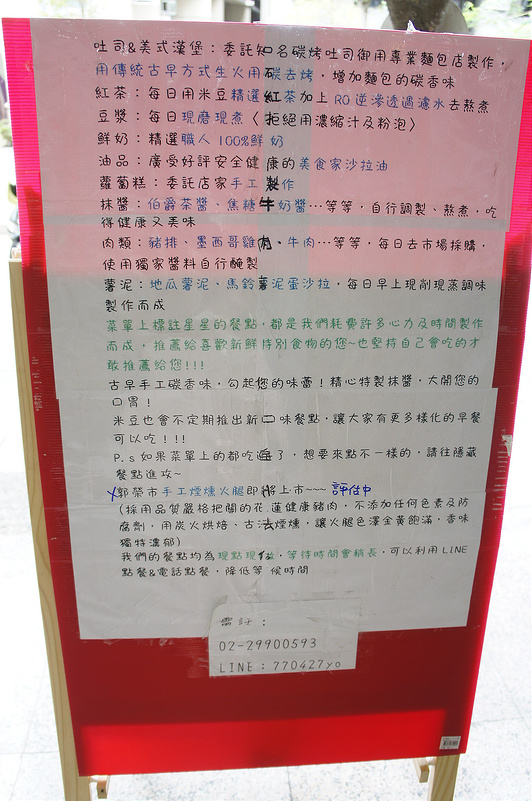 吐司&美式漢堡：委託知名碳烤吐司御用專業麵包店製作，
用傳統古早方式生火用碳去烤，增加麵包的碳香味
紅茶：每日用米豆精選紅茶加上RO逆滲透過濾水去熬煮
豆漿：每日現磨現煮〈拒絕用濃縮汁及粉泡〉
鮮奶：精選職人100%鮮奶
油品：廣受好評安全健康的美食家沙拉油
蘿蔔糕：委託店家手工製作
抹醬：伯爵茶醬、焦糖牛奶醬…等等，自行調製、熬煮，吃
得健康又美味
肉類：豬排、墨西哥雞肉、牛肉…等等，每日去市場採購，
使用獨家醬料自行醃製
薯泥：地瓜薯泥、馬鈴薯泥蛋沙拉，每日早上現削現蒸調味
製作而成
菜單上標註星星的餐點，都是我們耗費許多心力及時間製作
而成，推薦給喜歡新鮮特別食物的您~也堅持自己會吃的才
敢推薦給您!!!
古早手工碳香味，勾起您的味蕾！精心特製抹醬，大開您的
口胃！
米豆也會不定期推出新口味餐點，讓大家有更多樣化的早餐
可以吃！!!
P.s如果菜單上的都吃過了，想要來點不一樣的，請往隱藏
餐點進攻~
郭榮市手工煙燻火腿即將上市~~~ 評估中
(採用品質嚴格把關的花蓮健康豬肉，不添加任何色素及防
腐劑，用炭火烘焙、古法煙燻，讓火腿色澤金黃飽滿，香味
獨特濃郁)
我們的餐點均為現點現做，等待時間會稍長，可以利用LINE
點餐&電話點餐，降低等候時間
電話：
02-29900593
LINE：770427yo